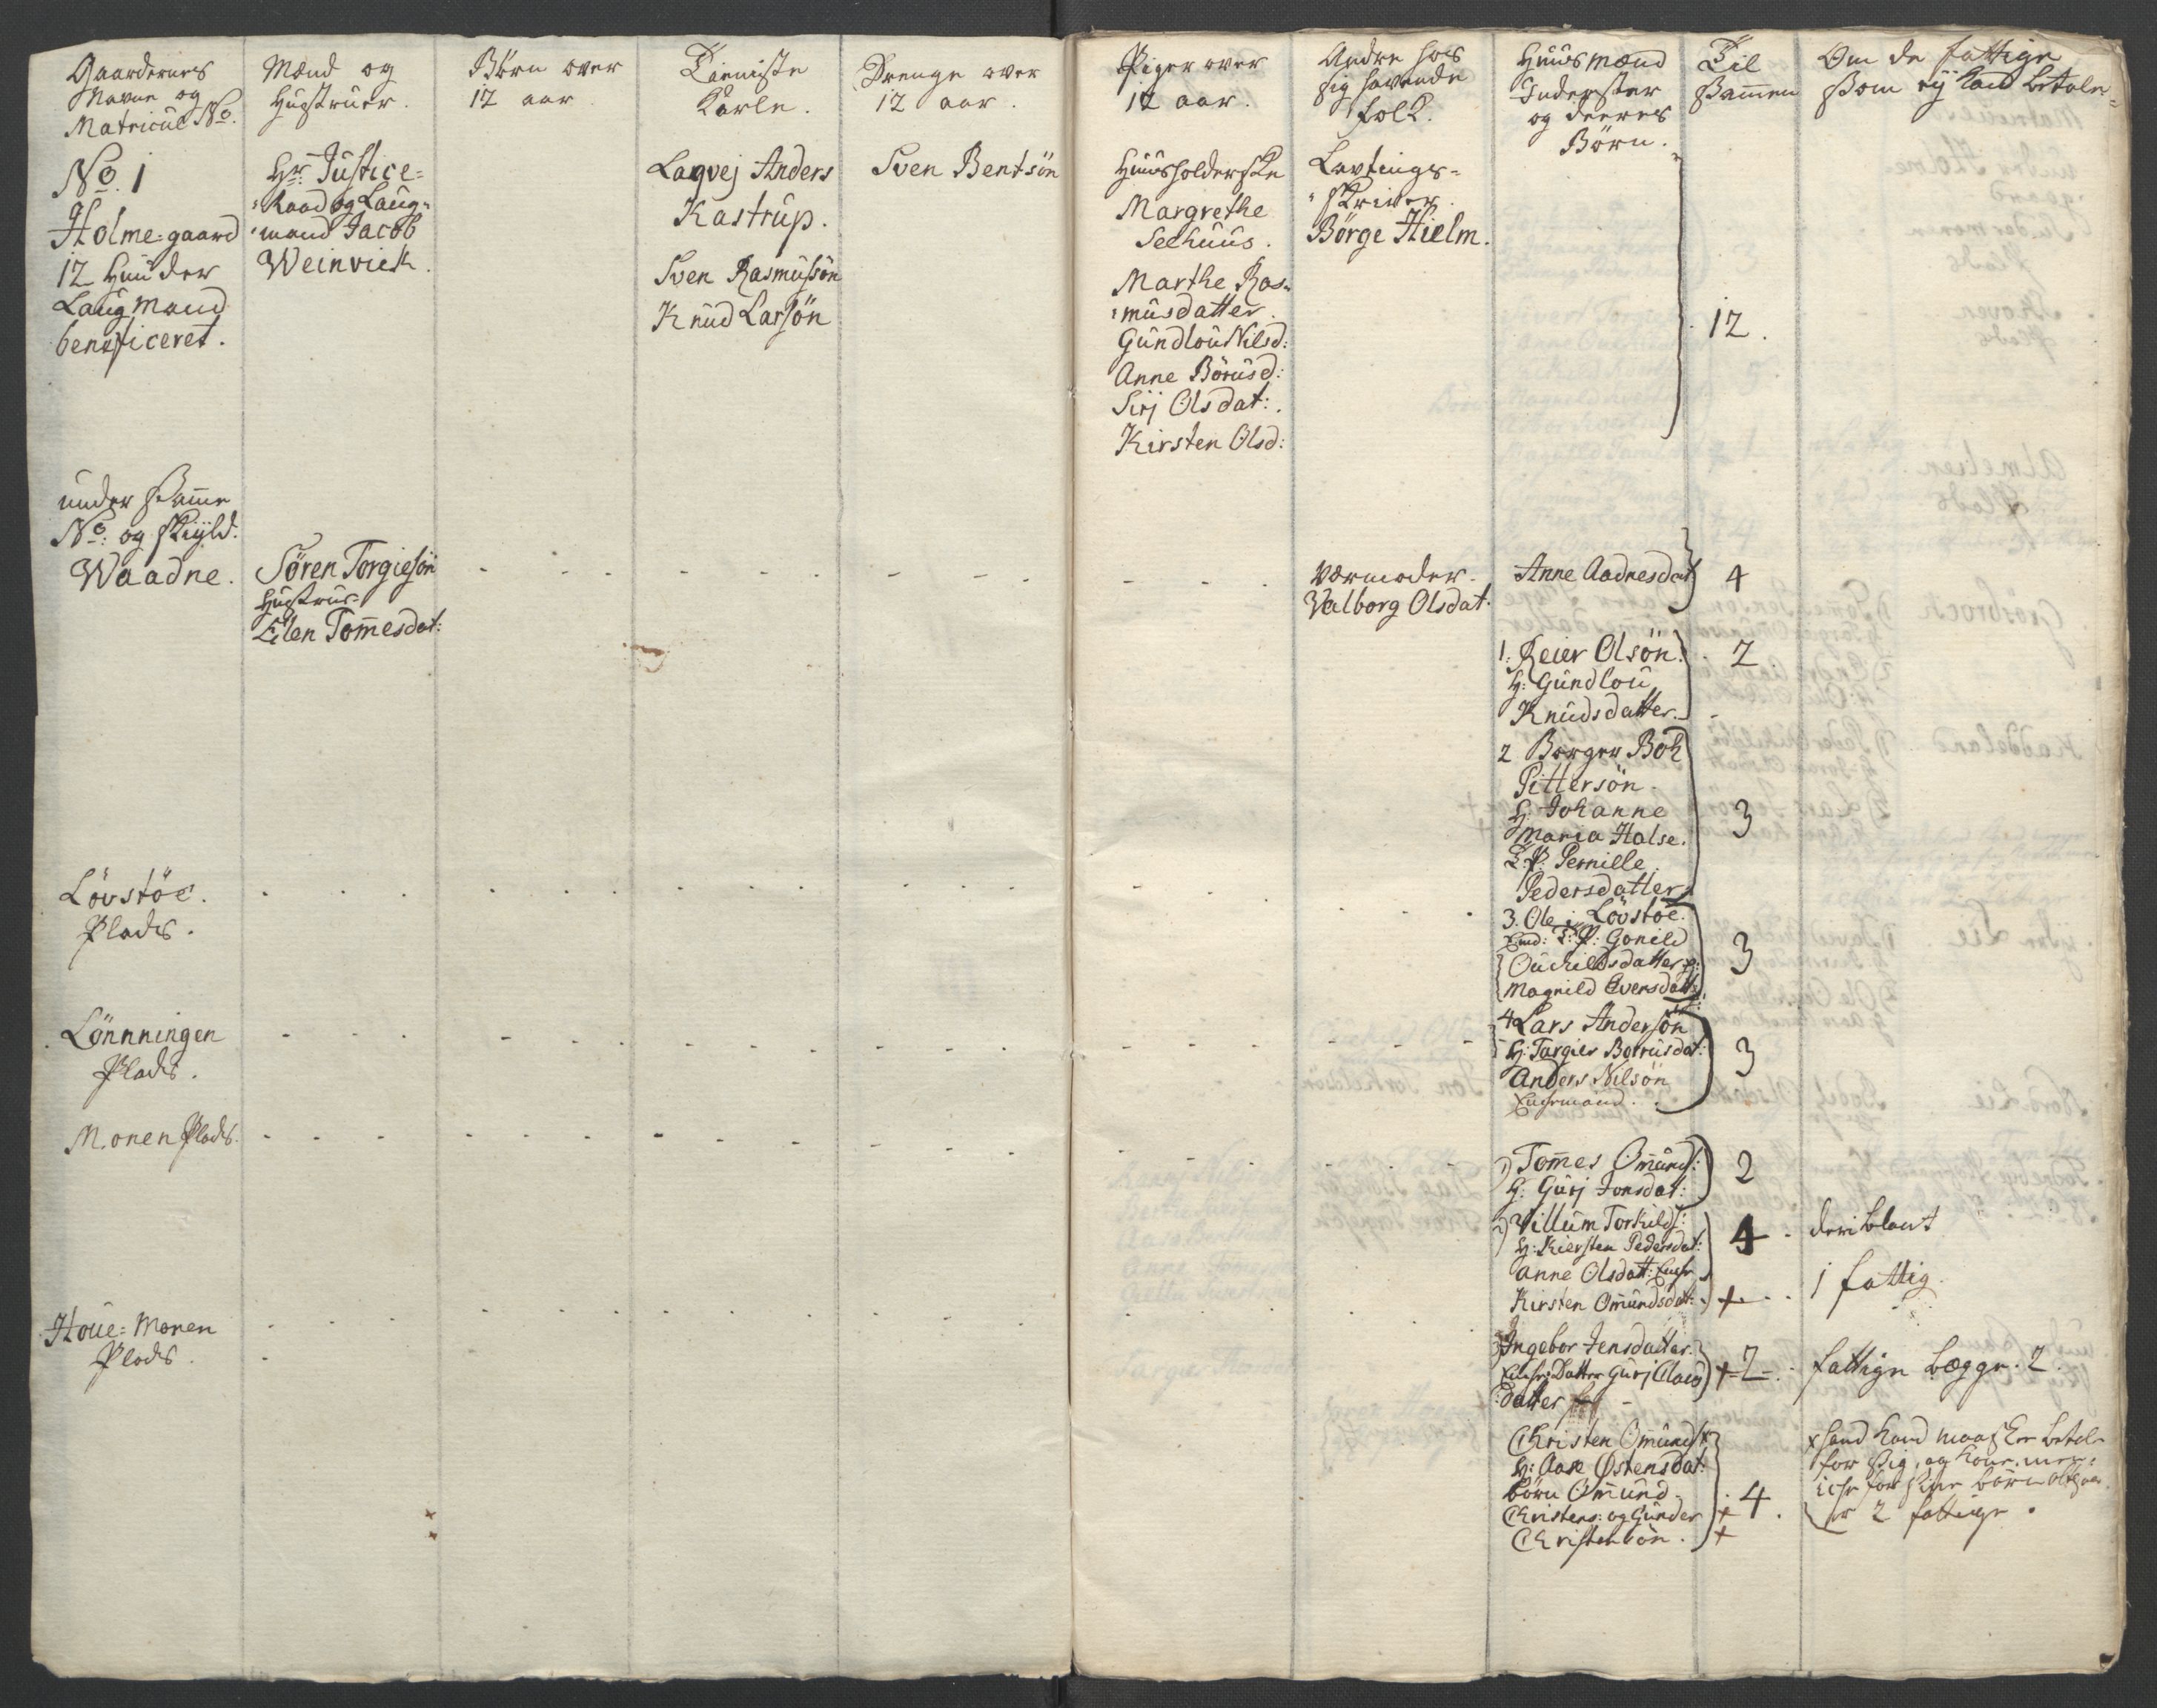 Gaardernes
Navne og
Matricul No.
Mænd og
Hustruer.
Börn over
12 aar
Tieniste
Karle.
Drenge over
12 aar.
Piger over
12 aar.
Andre hos
sig havende
folk.
Huusmænd
Inderster
og deeres
Börn.
Til
sammen
Om de fattige
som ej kand betale
No. 1
Holme-gaard
12 Huuder
Laugmand
beneficeret.
Hr. Justice-
Raad og Laug-
mand Jacob
Weinvich.
Laqvej Anders
Kastrup.
Sven Rasmusön
Knud Larsön
Sven Bentsön
Huusholderske
Margrethe
Seehuus.
Marthe Ras-
musdatter.
Gundlou Nilsd:
Anne Börusd:
Sirj Olsdat:.
Kirsten Olsd:
Lavtings-
skriver.
Börge Hielm.
12.
under samme
No. og skyld.
Waadne.
Sören Torgiesön
Hustrue
Eilen Tommesdat:
Værmoder.
Valborg Olsdat.
Anne Aadnesdat
4
1. Reier Olsön.
H: Gundlou
Knudsdatter.
2.
2 Borger Boh
Pittersön
H: Johanne
Maria Halse.
T: P: Pernille
Pedersdatter
3
Lövstöe.
Plads.
3. Ole i Lövstöe.
T: P: Gonild
Ouchildsdatter
Magnild Eversdatt.
3
Lönnningen
Plads.
4 Lars Andersön
H: Targier Borrusdat:
Anders Nilsön
3
Monen Plads.
1) Tommes Omunds:
H: Gurj Jonsdat:
2
2) Villum Torkilds:
H: Kiersten Pedersdat:
Anne Olsdatt:
Kirsten Omundsdat:
4
+
deriblant
1 fattig.
Houe-Monen
Plads.
Ingebor Jensdatter.
Datter Gurj Claus
datter
+ 2
fattige begge. 2.
Christen Omunds x
H: Aase Østensdat:
börn Omund
Christens: og Gunder
Christensön.
4.
+
+
x hand kand maaskee betale
for sig, og kone, men
icke for sine börn altsaa
er 2 fattige.